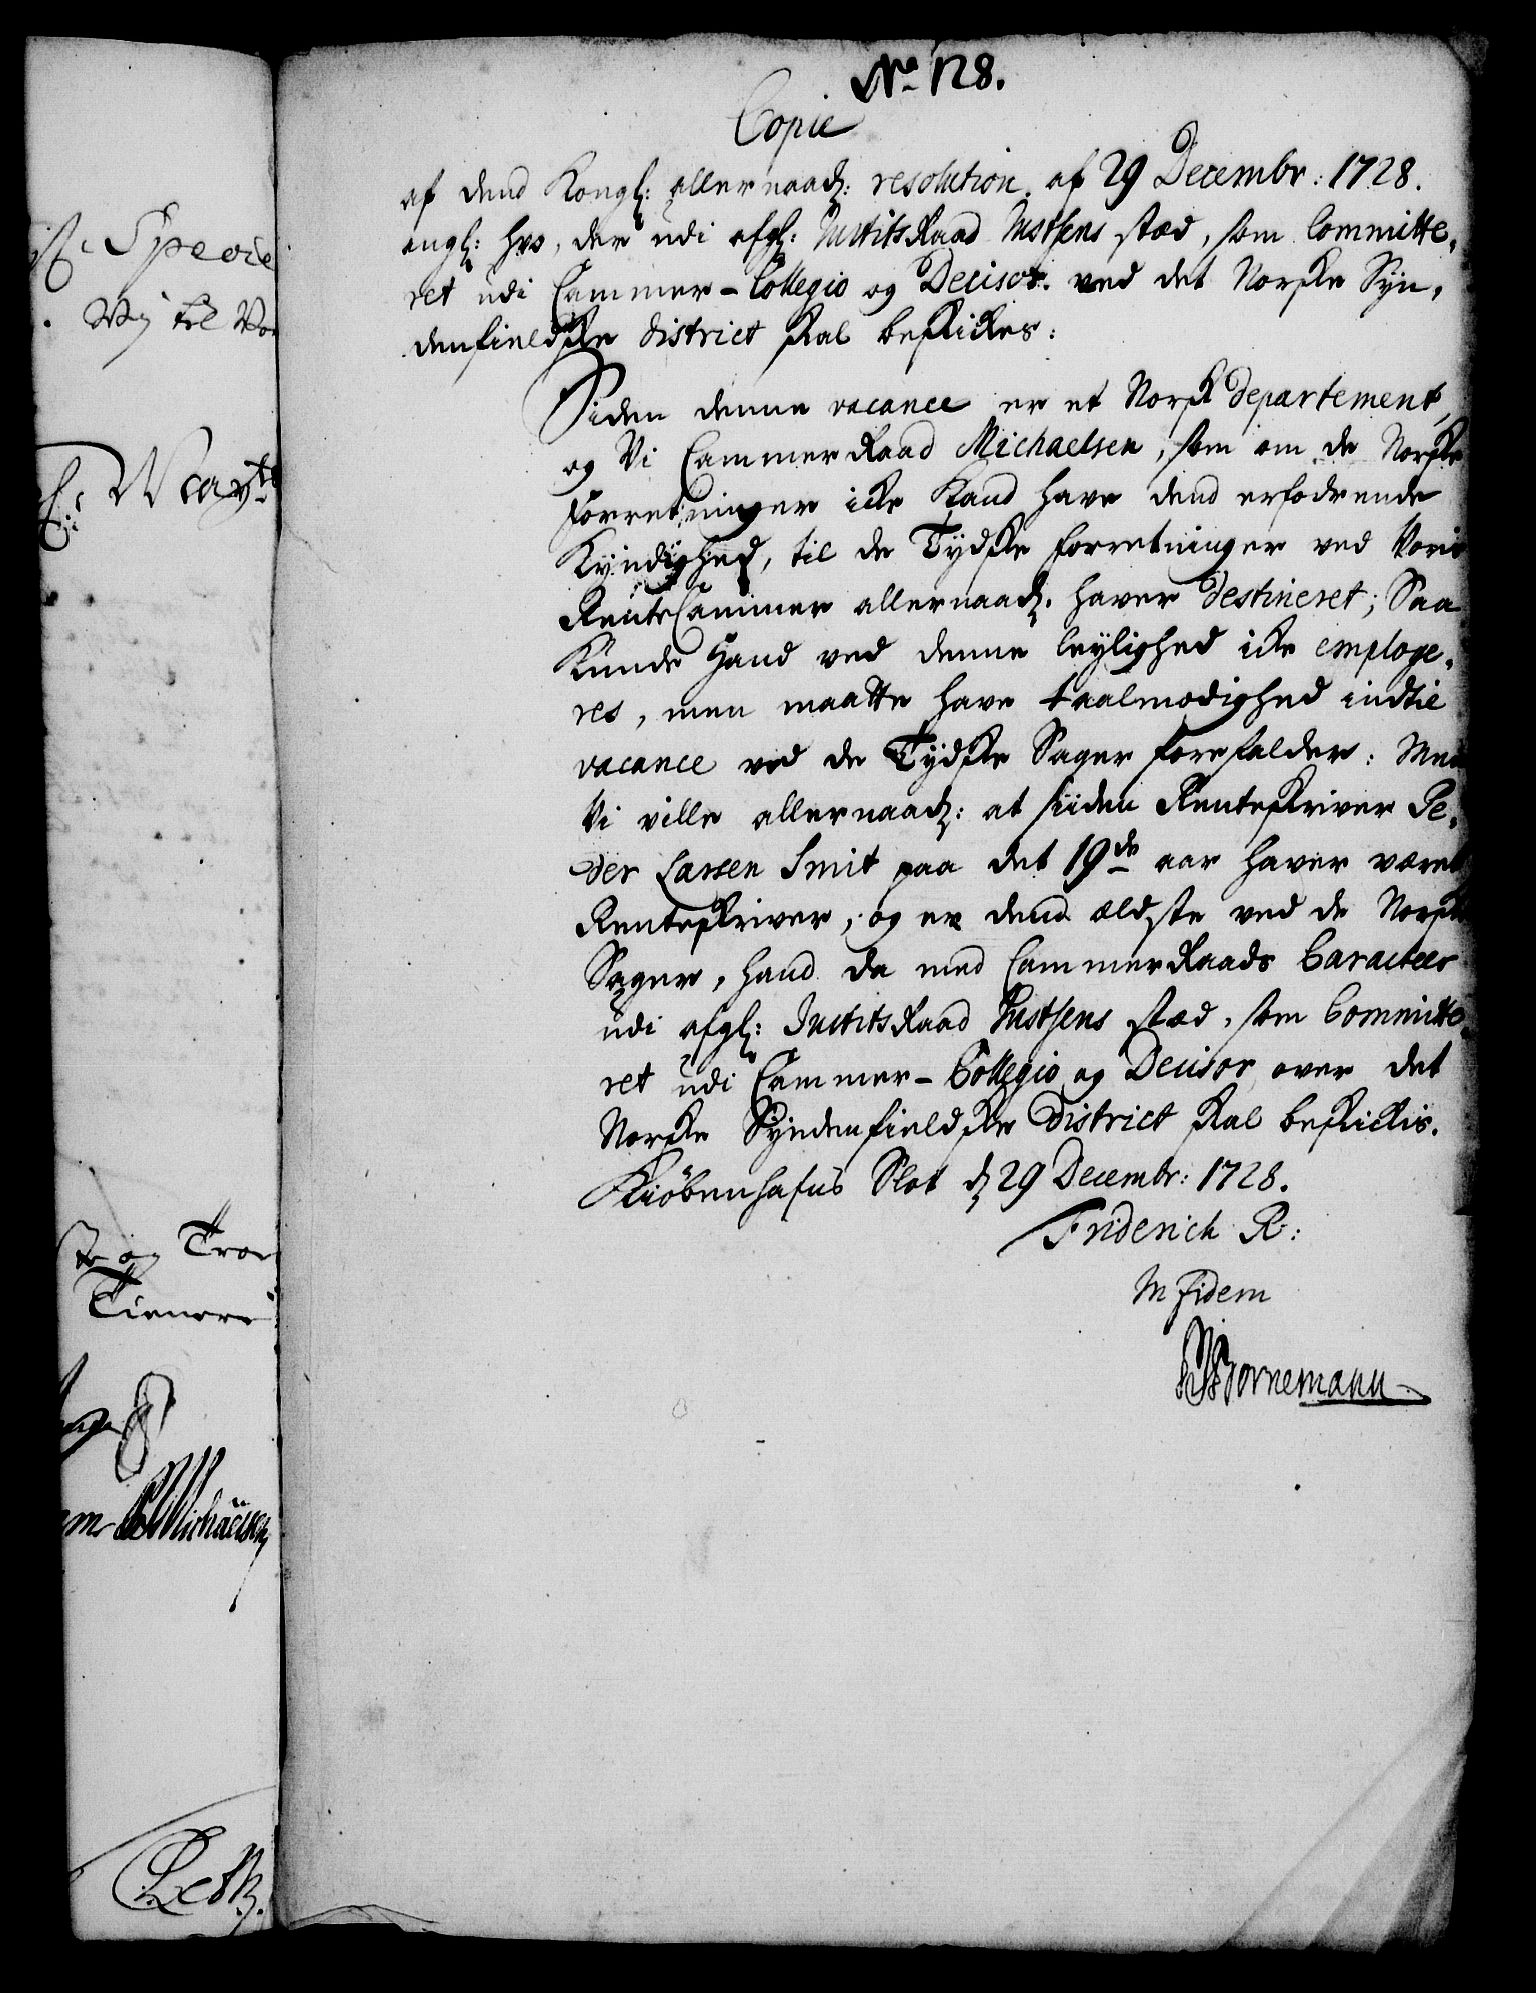 No 128.
Copie
af dend Kongl: allernaad: resolution af 29 Decembr: 1728.
angl: hvo, der udi afgl: JustitsRaad Justsens stæd, som Committe,
ret udi Cammer-Collegio og Decisor ved det Norske Syn,
denfieldske district skal beskikes:
Siden denne vacance er et Norsk departement,
og Vi CammerRaad Michaelsen, som om de Norske
forretninger icke kand have dend erfodrende
Kyndighed, til de Tydske forretninger ved Voris
RenteCammer allernaad: haver destineret; Saa
kunde Hand ved denne leylighed icke employe,
res, men maatte have taalmodighed indtil
vacance ved de Tydske Sager forefalder: Men
Vi ville allernaad: at siiden Renteskriver Pe,
der Larsen Smit paa det 19de aar haver været
Renteskriver, og er dend ældste ved de Norske
Sager, hand da med CammerRaads Caracteer
udi afgl: JustitsRaad Justsens stæd, som Committe,
ret udi Cammer-Collegio og Decisor over det
Norske Syndenfieldske District skal beskickis.
Kiøbenhafns Slot d 29 Decembr: 1728.
Friderich R:
In fidem
Bornemann
Specie
Vey til Vor
og Tro
Tienere
Michaelsen